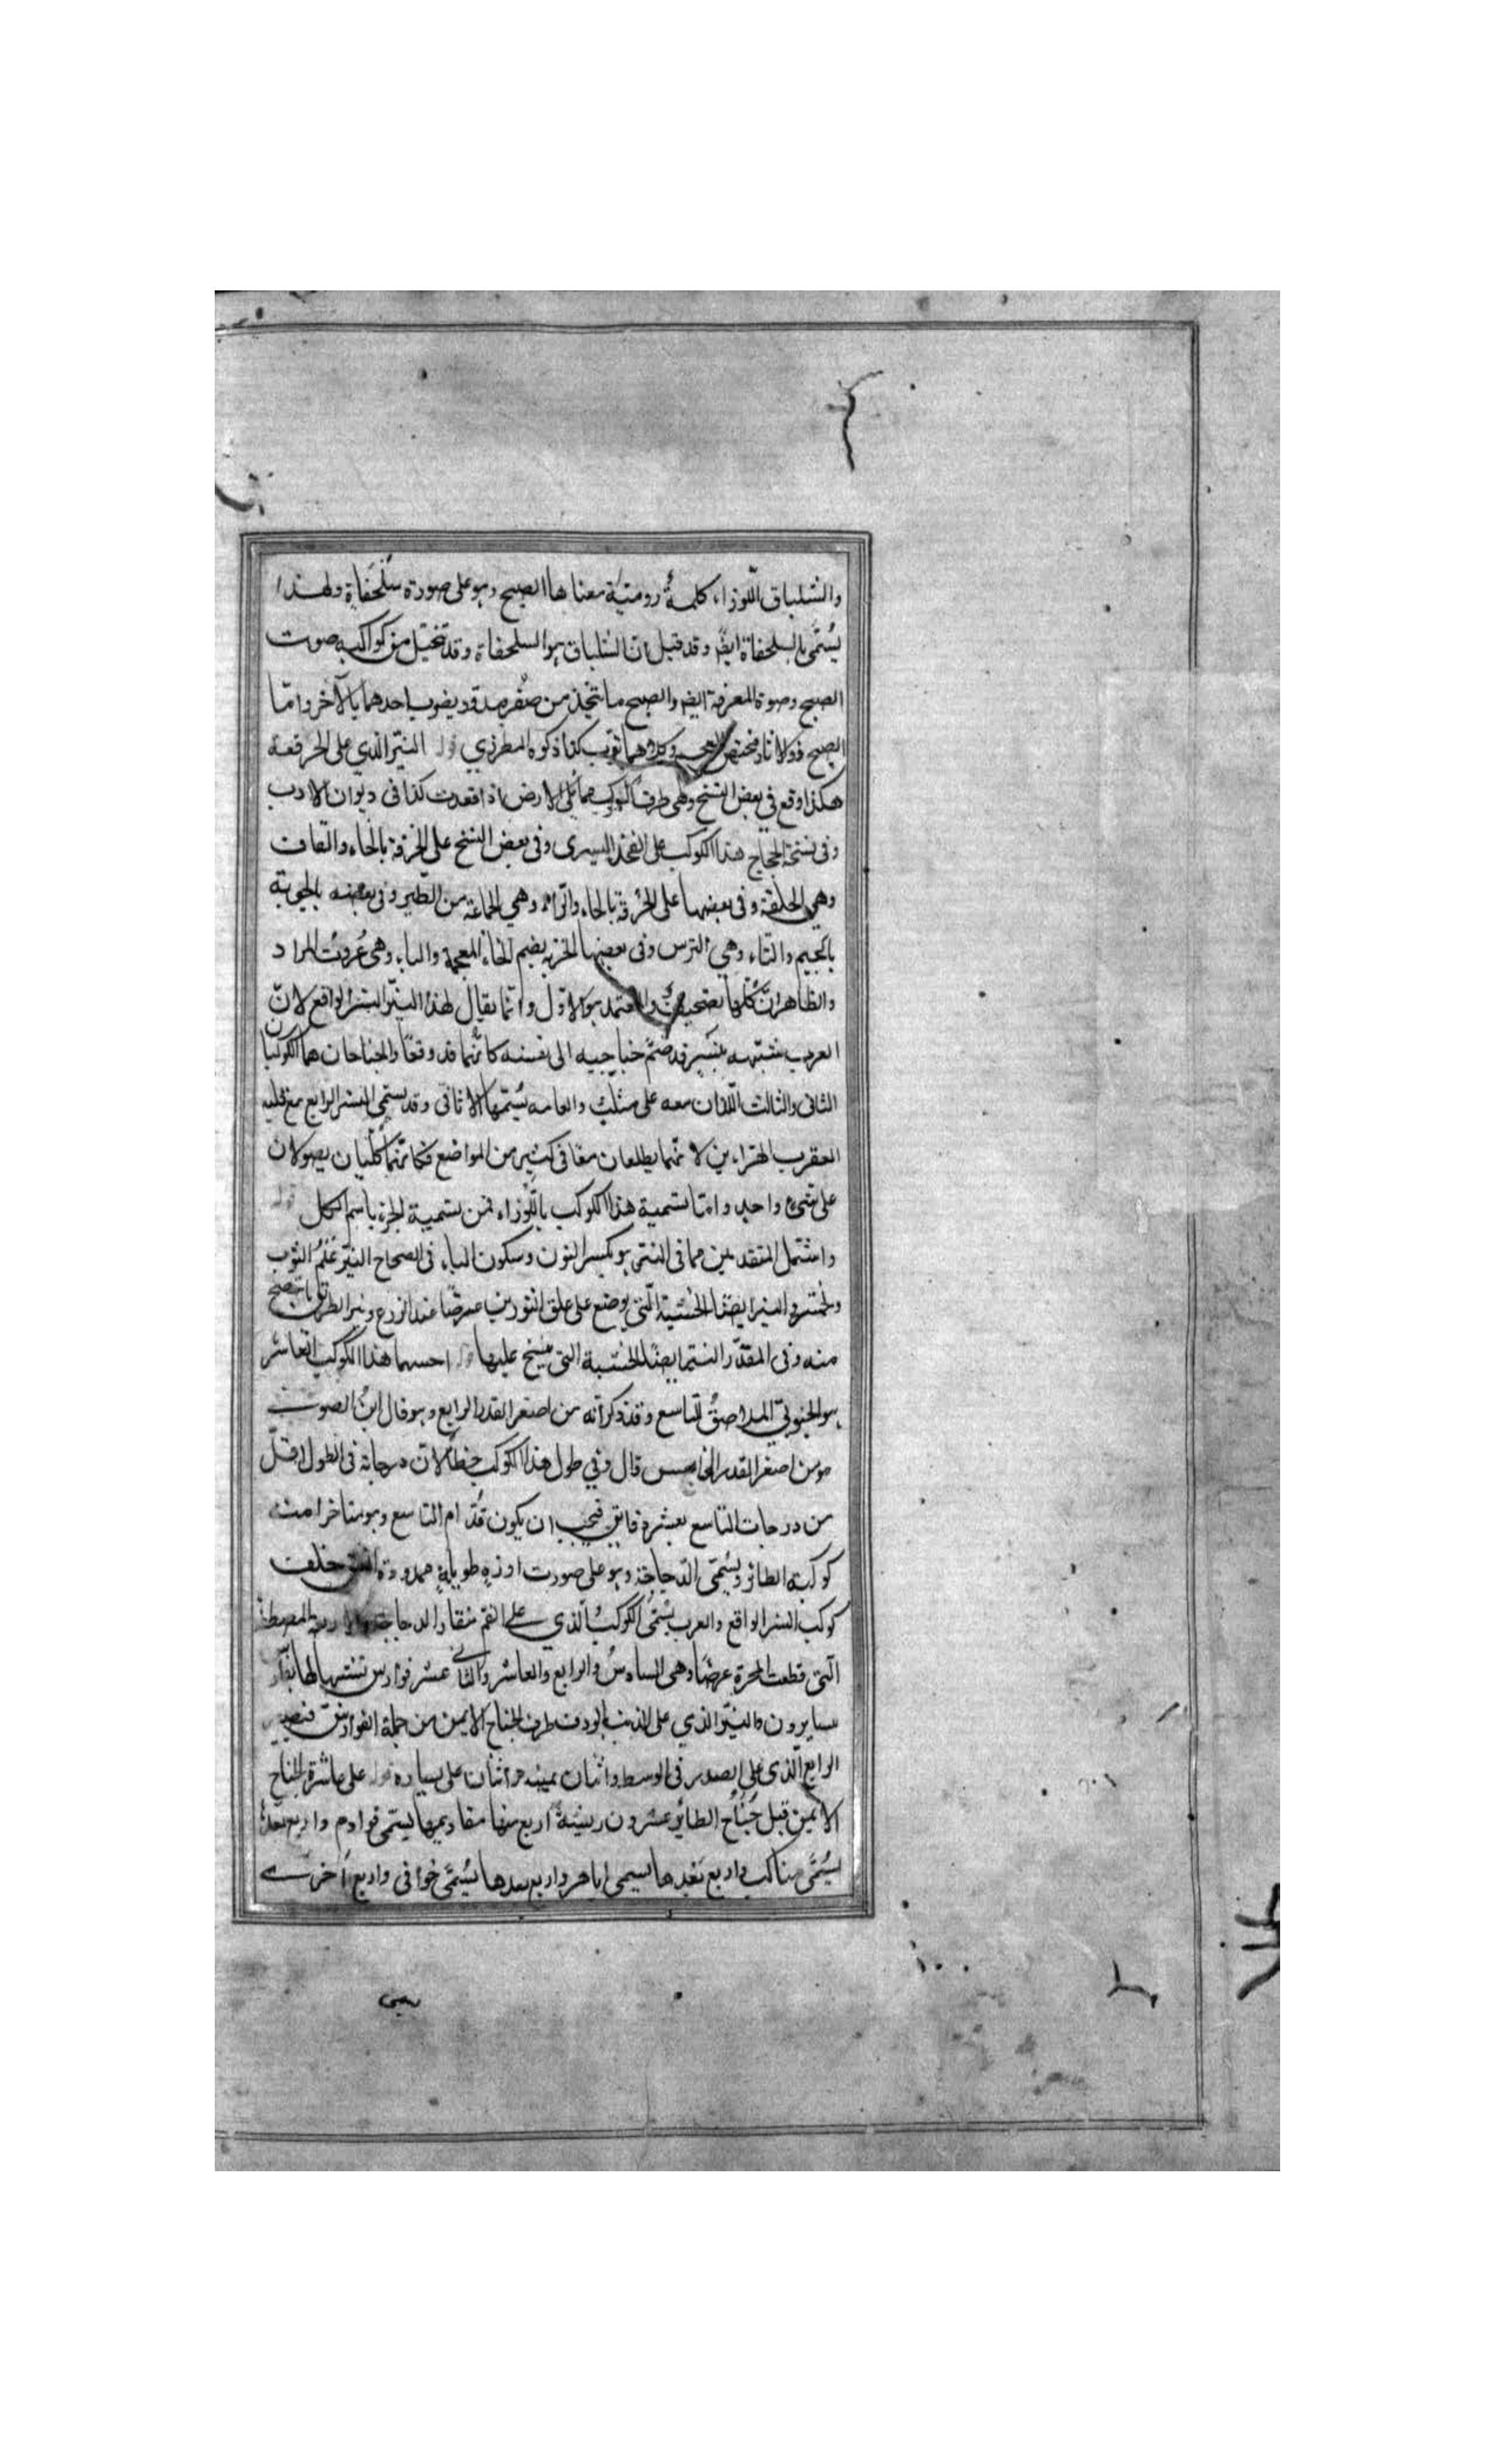 والشلياق اللوزا، كلمةٌ رومتية معناها الصبح وهو على صورة سُلَحفاةٍ ولهذا
يُسَمَّى بالسلحفاة ايضًا وقد قيل ان الشلياق هو السلحفاة وقد تخيّل من كواكبه صوت
الصبح وصوة المعرفة ايضا والصبح ما يتخذ من صُفر مدور يضرب احدهما بالآخر وامّا
الصبح ذو الاوتار فمختص وكلاهما معرب كذا ذكره المطرزي قوله النيّر الذي على الخرقعة
هكذا وقع في بعض النسخ وهي طرف مما يلي الارض اذا قعدت كذا في ديوان الادب
وفى نسخة الحجاج هذا الكوكب على الفخذ اليسرى وفى بعض النسخ على الحزقة بالحاء والقاف
وهي الحلقة وفى بعضها على الحُرقة بالحاء والراء وهي الجماعة من الطير وفى بعضه بالجوبة
بالجيم والتاء وهي الترس وفى بعضها الخربة بضم الخاء المعجمة والباء وهى عُروة المزاد
والظاهر انّ كلّها تصحيف والمعتمد هو الاوّل وانّما يقال لهذا النيّر النسر الواقع لانّ
العرب شبّهه بنسرٍ قد ضمّ جناحيه الى نفسه كانّما قد وقعا والجناحان هما الكوكبان
الثانى والثالث اللذان معه على مثلث والعامه يُسمّيها الاثافى وقد يسمّى النسر الواقع مع قلب
العقرب الهرارين لانهما يطلعان معًا فى كثير من المواضع فكانهما كلبان يصولان
على شىءٍ واحدٍ وامّا تسمية هذا الكوكب باللوزاء فمن تسمية الجزء باسم الكل قوله
واشتمل المتقدمين مما فى النير هو بكسر النون وسكون الياء فى الصحاح النير عَلَمُ الثوب
ولحمته والنير ايضًا الخشبة التى يوضع على عنق الثورين عرضًا عند الزرع ونير الطريق ما يتضح
منه وفى المقدّر النير ايضًا الخشبة التى ينسج عليها قوله احسبهما هذا الكوكب العاشر
هو الجنوبيّ الملاصقُ للتاسع وقد ذكر انّه من اصغر القدر الرابع وهو قال ابنُ الصوفى
هو من اصغر القدر الخامس قال وفي طول هذا الكوكب خطأ لان درجاته فى الطول اقلّ
من درجات التاسع بعشر دقايق فيجب ان يكون قُدّام التاسع وهو متاخرا منه
كوكبة الطائر ويُسمّى الدّجاجة وهو على صورت اوزة طويلةٍ ممدودة العنق خلف
كوكب النسر الواقع والعرب يُسمّى الكوكبُ الذي على الفم منقار الدجاجة والاربعة المصطفة
الّتى قطعت المجرة عرضًا وهى السادسُ والرابع والعاشر والثانى عشر فوارس تشبيهًا لها بفوارس
يسايرون والنيّر الذي على الذنب الردف طرف الجناح الايمن من جملة الفوارس فيصير
الرابع الذى على الصدر فى الوسط واثنان يمينه واثنان على يساره قوله على عاشرة الجناح
الايمن قيل جَنَاح الطائر عشرون ريشةً اربع منها مقاديمها يسمّى قوادم واربع بعدها
يُسَمَّى مناكب واربع بَعْدها يسمى اباهر واربع بعدها يُسَمَّى خوافى واربع اُخرى
يسمى